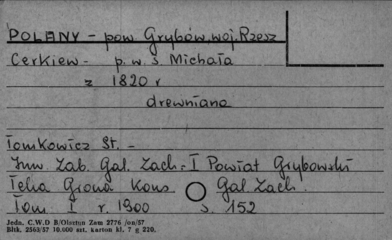 POLANY - pow. Grybów, woj. Rzesz
Cerkiew - p. w. s Michała
z 1820 r
drewniana
Tomkowicz St. -
Inw Zab. Gal. Zach. - I Powiat Grybowski
Teka Grona Kons Gal Zach.
Tom I r. 1900 s. 152
Jedn. C.W.D B/Olsztyn Zam 2776 /on/57
Bltk. 2563/57 10.000 szt. karton kl. 7 g 220.